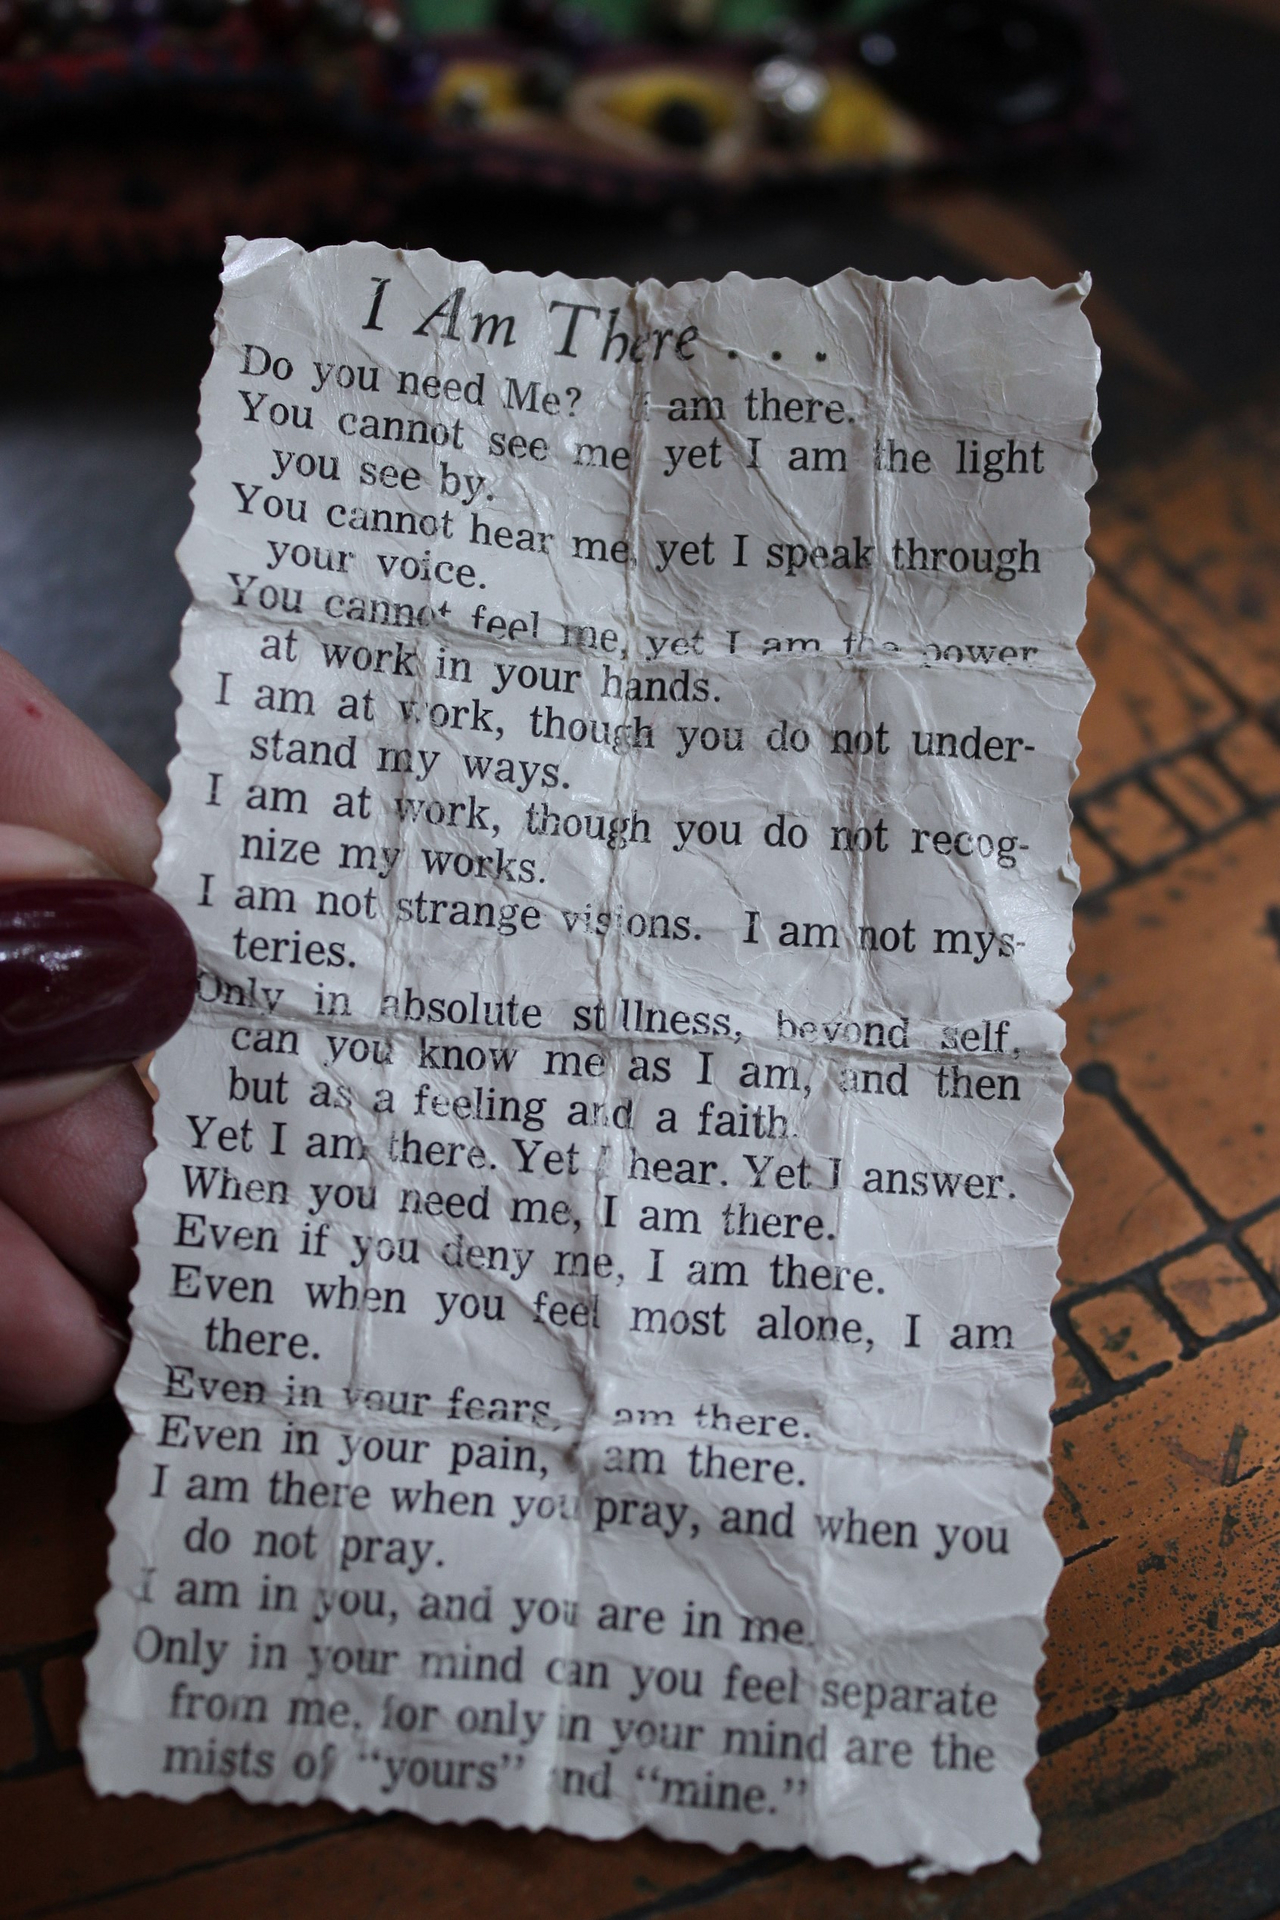 I Am There . . .
Do you need Me? I am there.
You cannot see me, yet I am the light
you see by.
You cannot hear me, yet I speak through
your voice.
You cannot feel me, yet I am the power
at work in your hands.
I am at work, though you do not under-
stand my ways.
I am at work, though you do not recog-
nize my works.
I am not strange visions. I am not mys-
teries.
Only in absolute stillness, beyond self,
can you know me as I am, and then
but as a feeling and a faith.
Yet I am there. Yet I hear. Yet I answer.
When you need me, I am there.
Even if you deny me, I am there.
Even when you feel most alone, I am
there.
Even in your fears, I am there.
Even in your pain, I am there.
I am there when you pray, and when you
do not pray.
I am in you, and you are in me.
Only in your mind can you feel separate
from me, for only in your mind are the
mists of “yours” and “mine.”